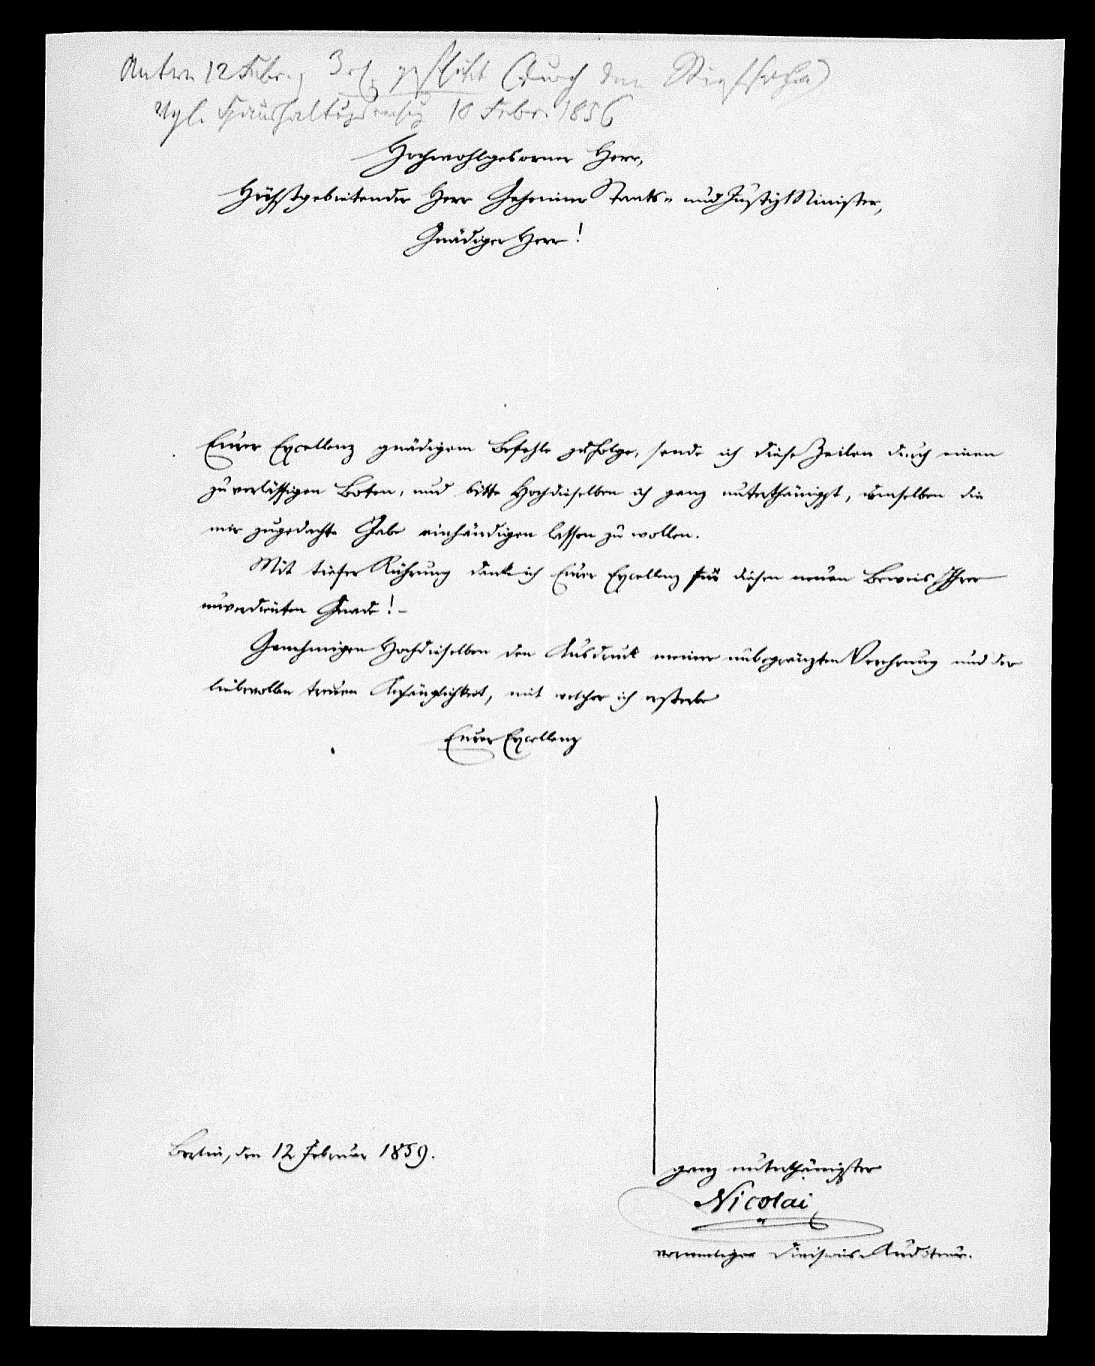 Antw. 12 Febr. 3 rf geschikt (durch den Stiefsohn)
Vgl. Haushaltungs 10 Febr. 1856
Hochwohlgeborner Herr,
Höchstgebietender Herr Geheimer Staats- und Justiz Minister,
Gnädiger Herr!
Eurer Excellenz gnädigem Befehle zufolge, sende ich diese Zeilen durch einen
zuverlässigen Boten, und bitte Hochdieselben ich ganz unterthänigst, demselben die
mir zugedachte Gabe einhändigen lassen zu wollen.
Mit tiefer Rührung danke ich Eurer Excellenz für diesen neuen Beweis Ihrer
unverdienten Gnade! –
Genehmigen Hochdieselben den Ausdruck meiner unbegränzten Verehrung und der
liebevollen treuen Anhänglichkeit, mit welcher ich ersterbe
Eurer Excellenz
Berlin, den 12 Februar 1859.
ganz unterthänigster
Nicolai
vormaliger Divisions-Auditeur.